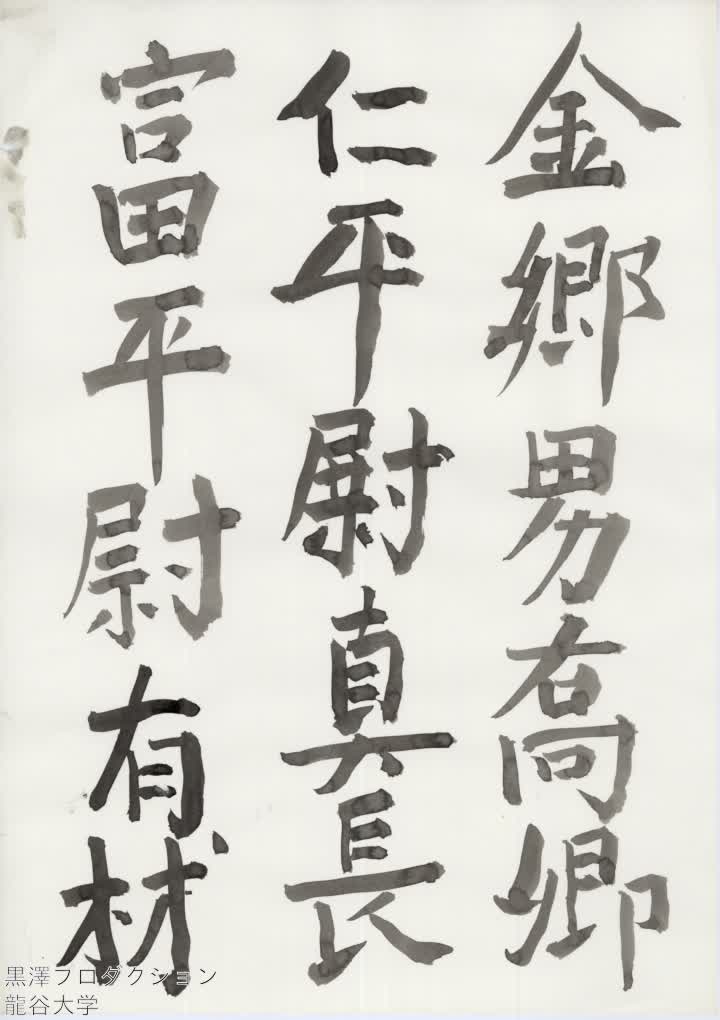 金郷男髙卿
仁平尉真長
富平尉有材
黒澤プロダクション
龍谷大学